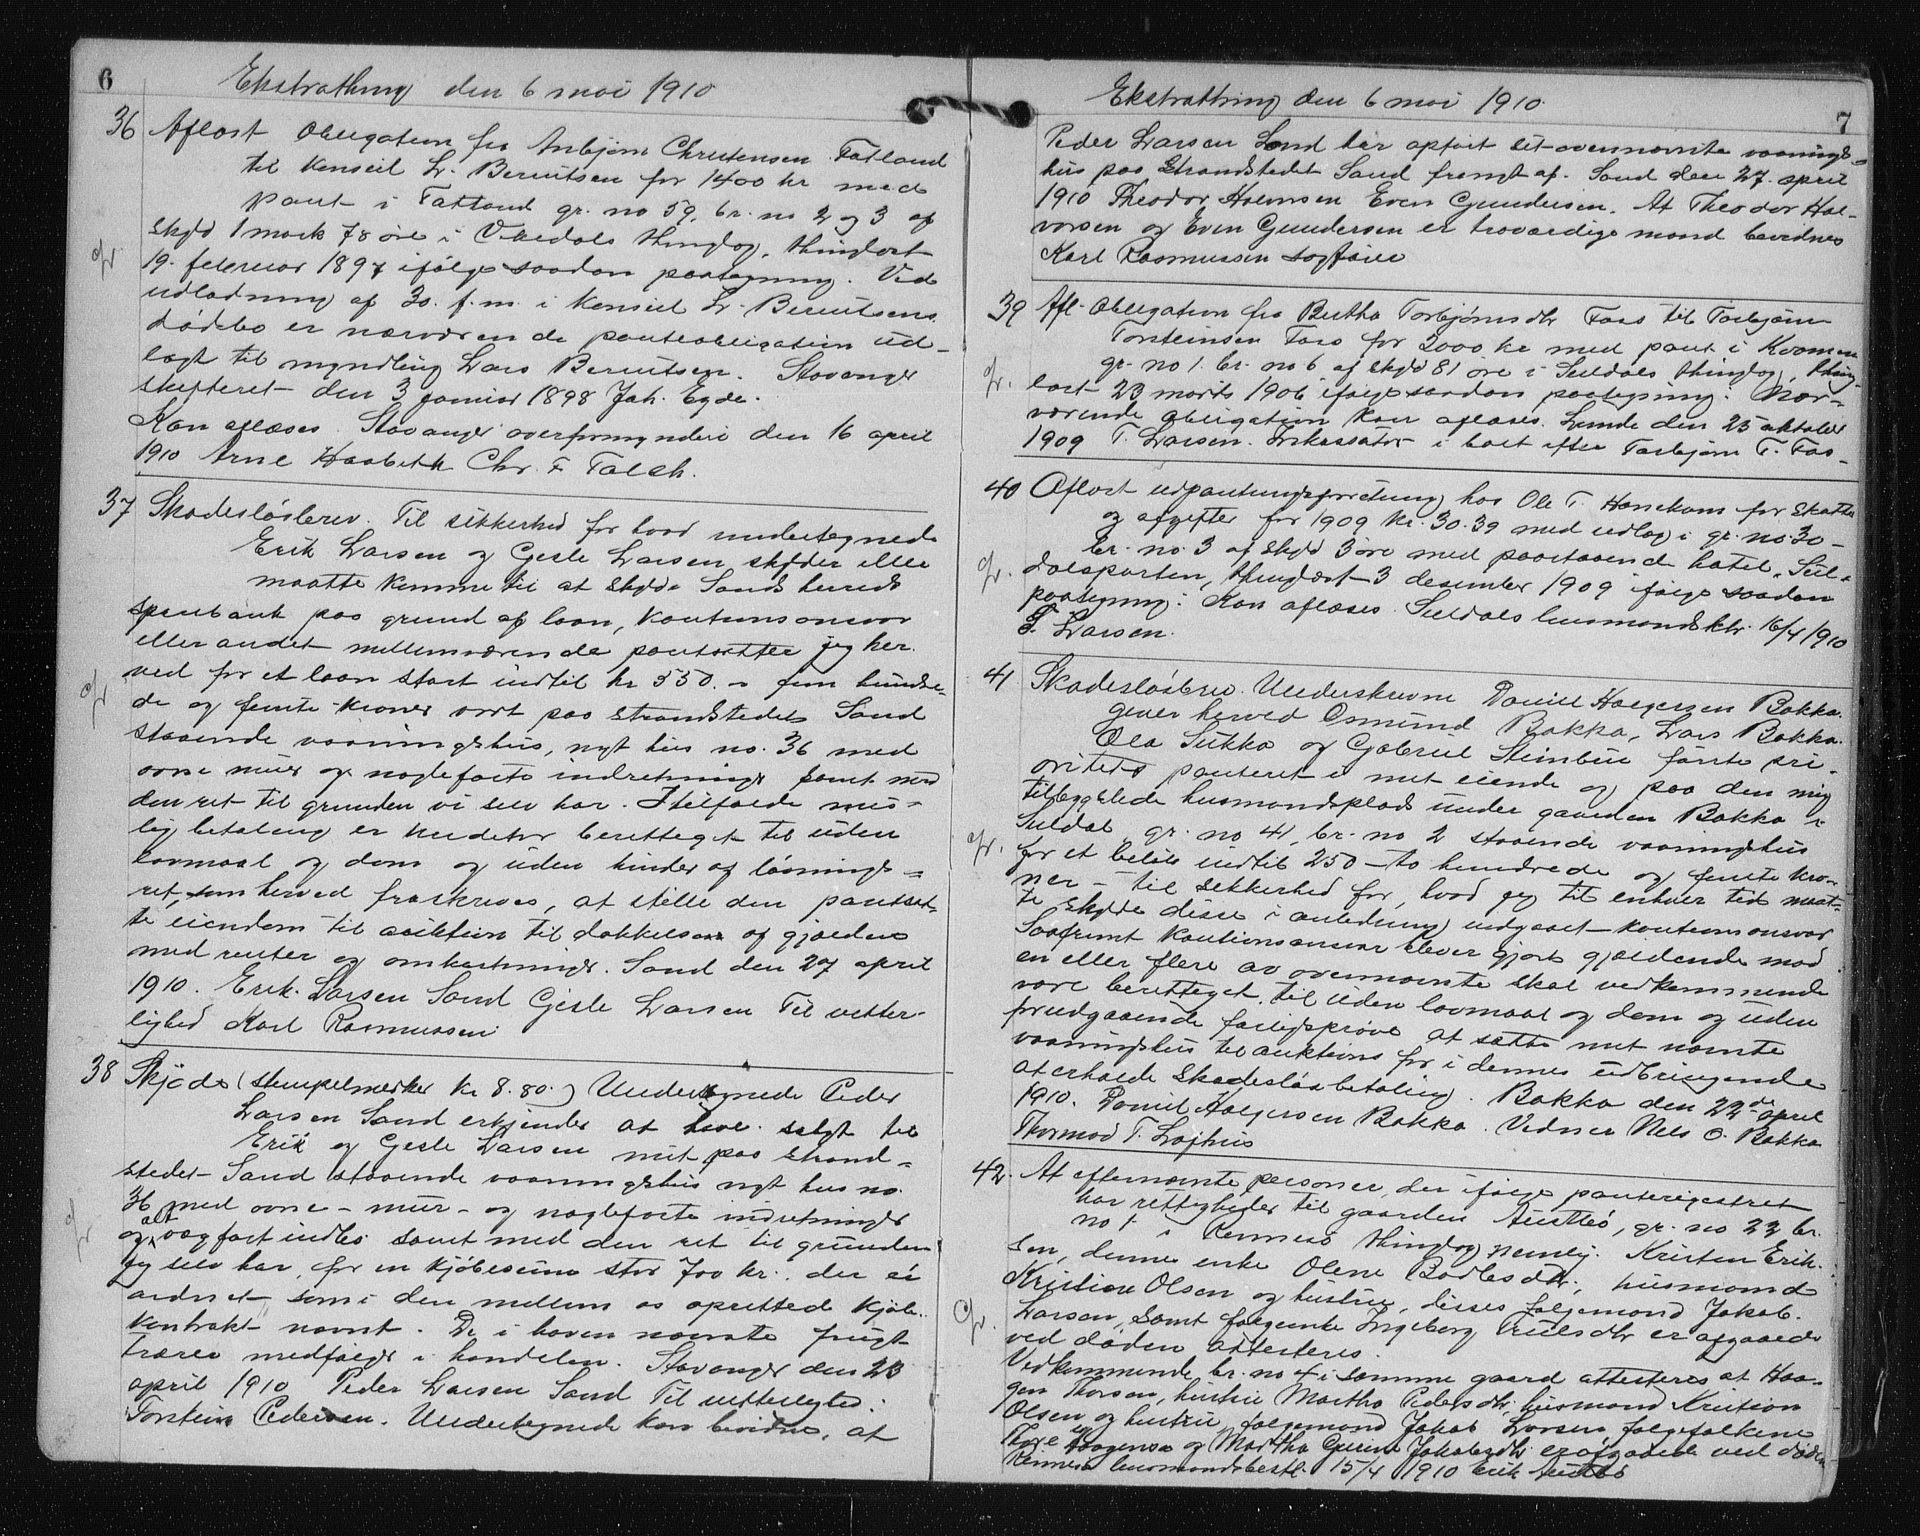 6
Ekstrathing den 6 mai 1910
36 Aflæst Obligation fra Anbjørn Christensen Fatland
til Konseil L. Berentsen for 1400 kr med
pant i Fatland gr. no 59, br. no 2 og 3 af
skyld 1 mark 78 øre i Vikedals thinglag, thinglæst
19. februar 1897 ifølge saadan paategning. Ved
udlodning af 30. f.m. i Konseil L. Berentsens
dødsbo er nærværende panteobligation ud-
lagt til myndling Lars Berentsen. Stavanger
skifteret den 3 januar 1898 Joh. Egde.
Kan aflæses. Stavanger overformynderi den 16 april
1910 Arne Haabeth Chr. F Falch.
37 Skadesløsbrev. Til sikkerhed for hvad undertegnede
Erik Larsen og Gisle Larsen skylder eller
maatte komme til at skylde Sands herreds
sparebank paa grund af laan, kautionsansvar
eller andet mellemværende pantsætter jeg her-
ved for et laan stort indtil kr 550 – fem hundre-
de og femti kroner vort paa strandstedet Sand
staaende vaaningshus, nyt hus no. 36 med
ovne murer og naglefaste indretninger samt med
den ret til grunden vi selv har. I tilfælde mis-
lig betaling er kreditor berettiget til uden
lovmaal og dom og uden hinder af løsnings-
ret, som herved fraskrives, at stille den pantsat-
te eiendom til auktion til dækkelse af gjælden
med renter og omkostninger. Sand den 27 april
1910. Erik Larsen Sand Gisle Larsen Til vitter-
lighed Karl Rasmussen
38 Skjøde (stempelmerker kr 8.80.) Undertegnede Peder
Larsen Sand erkjender at have solgt til
Erik og Gisle Larsen mit paa strand-
stedet Sand staaende vaaningshus nyt hus no.
36 med ovne – mur – og naglefaste indretninger
og alt vægfast indbo samt med den ret til grunden
jeg selv har, for en kjøbesum stor 700 kr. der er
ordnet som i den mellem os oprettede kjøbe-
kontrakt nævnt. De i haven nævnte frugt-
trærer medfølger i handelen. Stavanger den 23
april 1910 Peder Larsen Sand Til vitterlighed:
Torstein Pedersen. Undertegnede kan bevidne, at
7
Ekstrathing den 6 mai 1910.
Peder Larsen Sand har opført sit ovennævnte vaanings-
hus paa Strandstedet Sand fremgt af. Sand den 27. april
1910 Theodor Halvorsen Even Gundersen. At Theodor Hal-
vorsen og Even Gundersen er troværdige mænd bevidnes
Karl Rasmussen sagfører
39 Afl. Obligation fra Bertha Torbjørnsdtr Faas til Torbjørn
Torsteinsen Faas for 2000 kr med pant i Kvamen
gr. no 1. br. no 6 af skyld 81 øre i Suldals thinglag, thing-
læst 23 marts 1906 ifølge saadan paategning. Nær-
værende obligation kan aflæses. Lunde den 25 oktober
1909 T. Larsen. Inkassator i boet efter Torbjørn T. Faas
40 Aflæst udpantningsforretning hos Ole T. Hanekam for skatter
og afgifter for 1909 kr. 30.39 med udlæg i gr. no. 30
br. no. 3 af skyld 3 øre med paastaaende hotel, Sul-
dalsporten, thinglæst 3 desember 1909 ifølge saadan
paategning: Kan aflæses. Suldals lensmandsktr. 16/4 1910
T. Larsen.
41 Skadesløsbrev. Underskrevne Daniel Halgersen Bakka
giver herved Osmund Bakka, Lars Bakka.
Ola Sukka og Gabriel Steinbru første pri-
oritets panteret i mit eiende og paa den mig
tilbygslede husmandsplads under gaarden Bakka i
Suldal gr. no 41, br. no 2 staaende vaaningshus
for et beløb indtil 250 – to hundrede og femti kro-
ner – til sikkerhed for, hvad jeg til enhver tid maat-
te skylde disse i anledning indgaaet kautionsansvar
Saafremt kautionsansvar blever gjort gjældende mod
en eller flere av ovennævnte skal vedkommende
være berettiget til uden lovmaal og dom og uden
forudgaaende forligsprøve at sætte mit nævnte
vaaningshus til auktions for i dennes udbringende
at erholde skadesløs betaling. Bakka den 22de april
1910. Daniel Halgersen Bakka. Vidner Nels O. Bakka
Thormod T. Lajhus
42. At efternævnte personer, der ifølge panteregistret
har rettigheder til gaarden Austbø, gr. no 22 br.
no 1 i Rennesø thinglag nemlig: Kristen Erik-
sen, dennes enke Olene Bodlesdtr, husmand
Kristian Olsen og hustru, disses følgemand Jakob
Larsen, samt følgeenke Ingeborg Truelsdtr er afgaaede
ved døden attesteres.
Vedkommende br. no 4 i samme gaard attesteres at Haa-
gen Thorsen, hustru Martha Pedersdtr, husmand Kristian
Olsen og hustru, følgemand Jakob Larsen, følgefolkene
Tore Haagensen og Martha Gurine Jakobsdtr er afgaaede ved døden
Rennesø lensmandsbestl. 15/4 1910 Erik Austbø